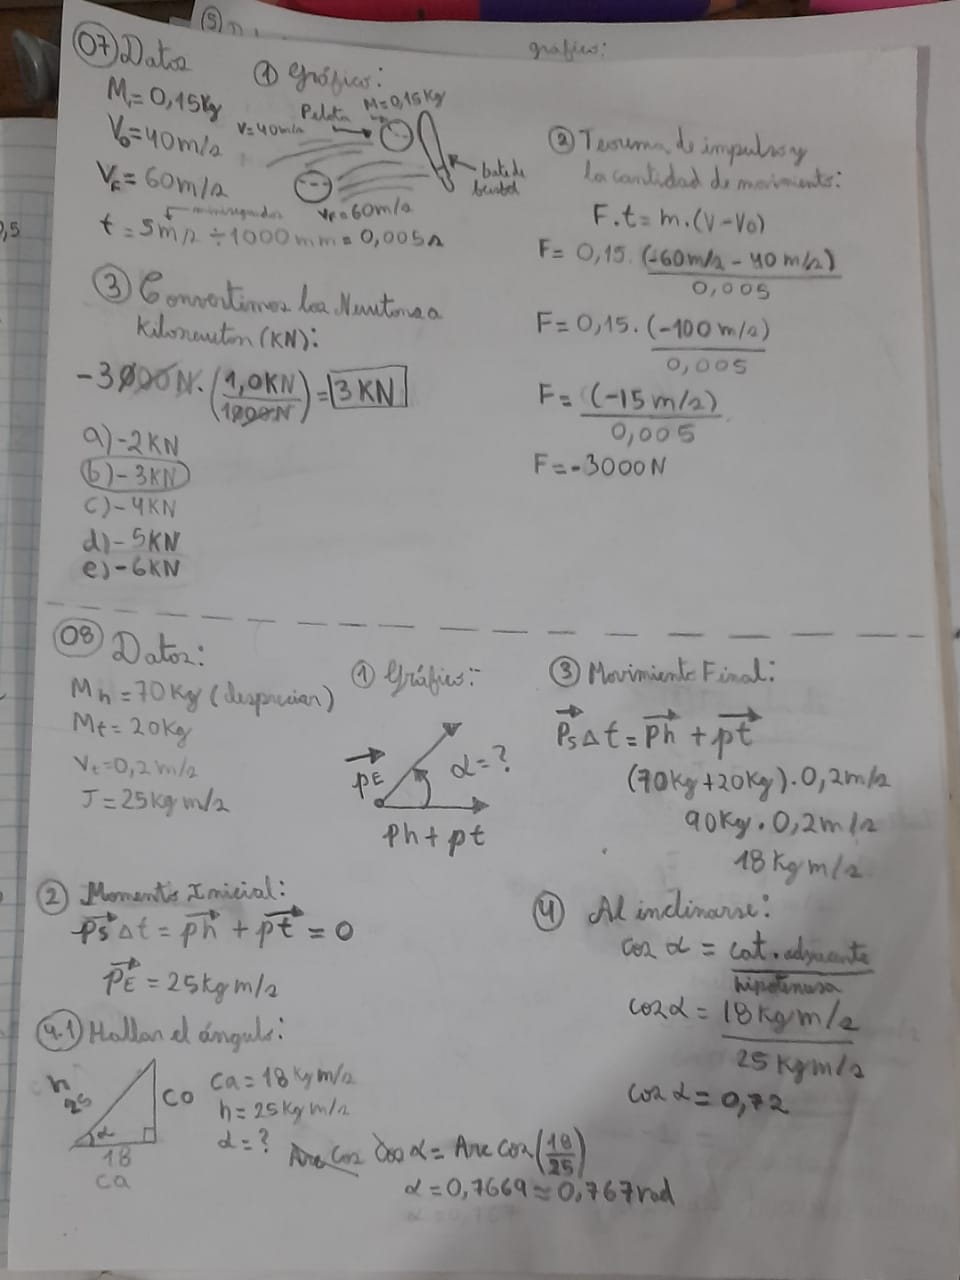 (5)
gráfico:
(07) Datos
M=0,15Kg
V₀=40m/s
V_F=60m/s
t=5m/s÷1000mm=0,005s
milisegundos
① Gráfico:
Pelota M=0,15Kg
V=40m/s
bate de
beisbol
V_F=60m/s
② Teorema de impulso y
la cantidad de movimiento:
F.t=m.(V-V₀)
F=0,15.(-60m/s-40m/s)
0,005
F=0,15.(-100m/s)
0,005
F=(-15m/s)
0,005
F=-3000N
③ Convertimos los Newtons a
Kilonewton (KN):
-3000N.(1,0KN/1000N)=3KN
a)-2KN
b)-3KN
c)-4KN
d)-5KN
e)-6KN
(08) Datos:
Mh=70Kg (despreciar)
Mt=20Kg
Vt=0,2m/s
J=25Kgm/s
① Gráfico:
pE
α=?
ph+pt
② Momento Inicial:
ps Δt=ph+pt=0
pE=25Kgm/s
③ Movimiento Final:
Ps Δt=ph+pt
(70Kg+20Kg).0,2m/s
90Kg.0,2m/s
18Kgm/s
④ Al inclinarse:
cos α=cat.adyacente
hipotenusa
cosα=18Kgm/s
25Kgm/s
cos α=0,72
4.1 Hallar el ángulo:
h
25
CO
α
18
ca
ca=18Kgm/s
h=25Kgm/s
α=?
Arc Cos Cos α=Arc Cos(18/25)
α=0,7669≈0,767rad